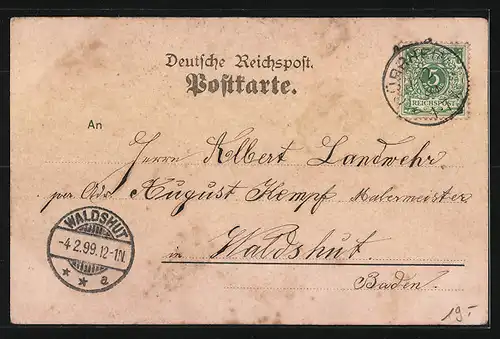 Deutsche Reichspost.
Postkarte.
5
REICHSPOST
An
Herrn Albert Landwehr
per Adr. August Kempf Malermeister
in Waldshut.
Baden.
WALDSHUT
-4.2.99.12-1N.
* * a
19.-